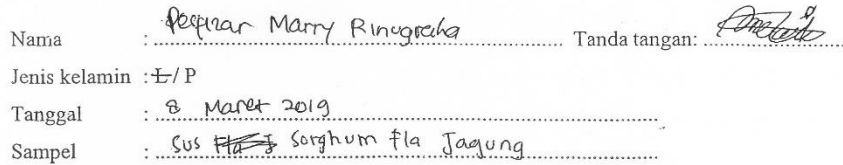 Nama : Marry Rinugraha Tanda tangan:
Jenis kelamin : L / P
Tanggal : 8 Maret 2019
Sampel : Sus Sorghum fla Jagung